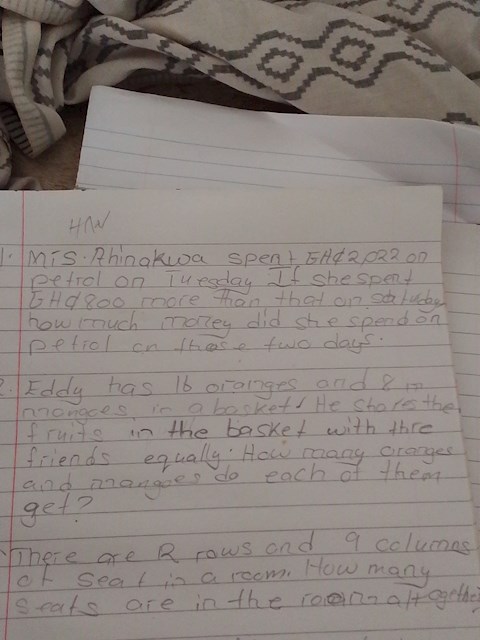 H/W
1. Mrs. Ahinakwa spent GH¢2,022 on
petrol on Tuesday If she spent
GH¢800 more than that on saturday
how much money did she spend on
petrol on those two days.
2. Eddy has 16 oranges and 8 m
mangoes in a basket. He shares the
fruits in the basket with thre
friends equally. How many oranges
and mangoes do each of them
get?
There are R rows and 9 columns
of seat in a room. How many
seats are in the room altogether